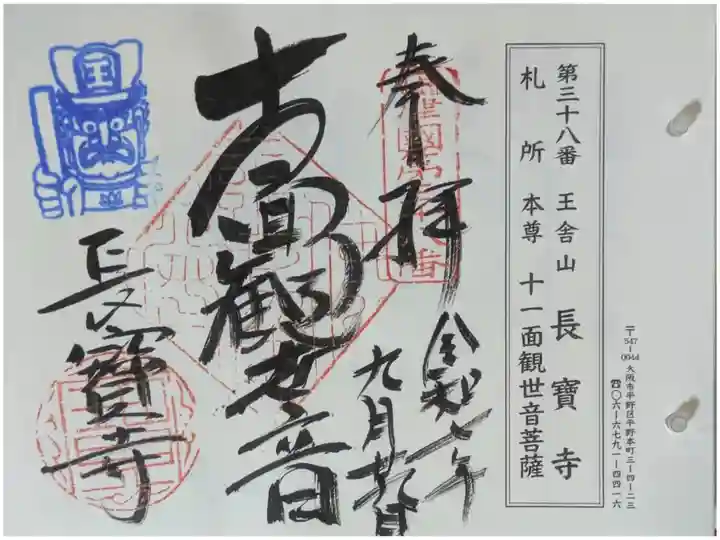 第三十八番 王舎山 長寶寺
札所 本尊 十一面観世音菩薩
〒547-0044 大阪市平野区平野本町三ー四ー二三
☎〇六ー六七九一ー四四一六
奉拝
令和七年
九月
十一面観世音
長寶寺
王